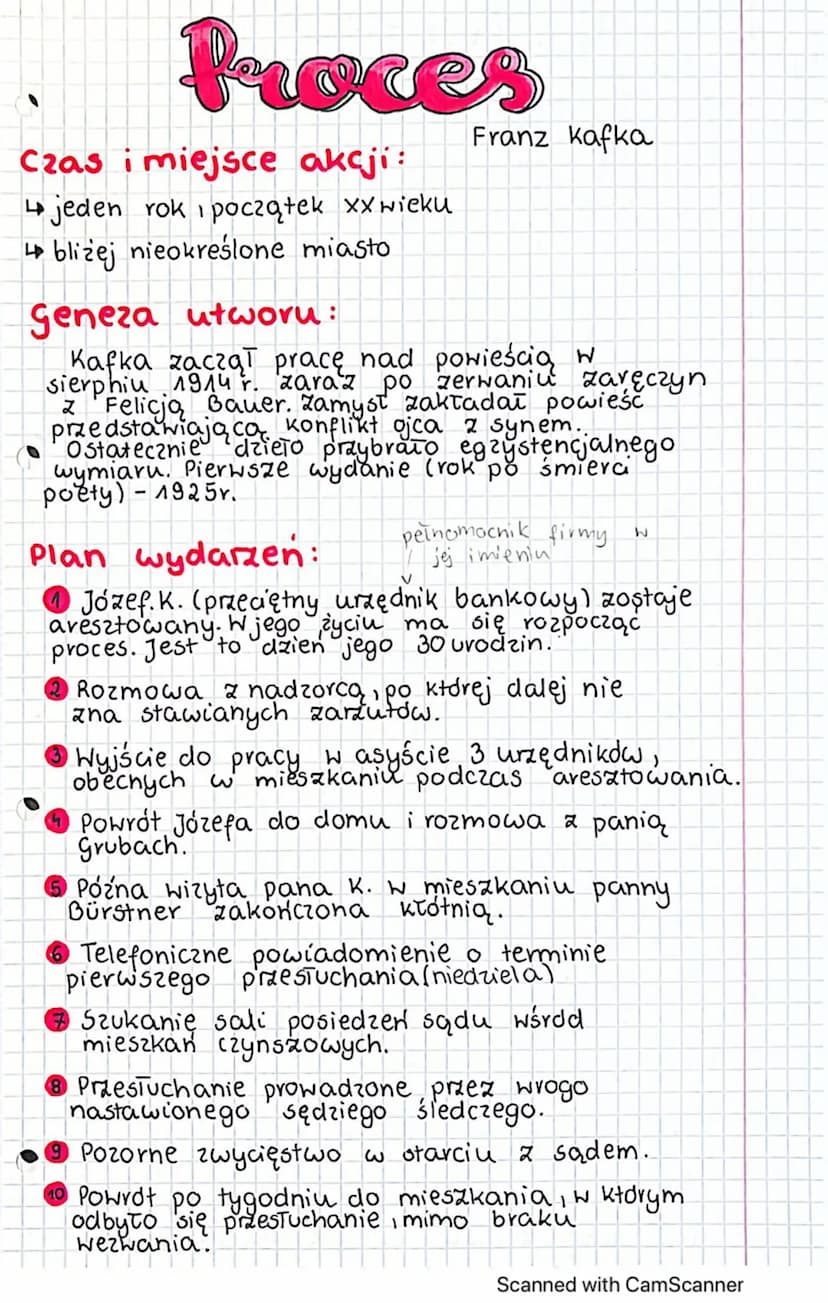 Proces
Franz Kafka
Czas i miejsce akcji:
↳ jeden rok, początek XX wieku
↳ bliżej nieokreślone miasto
Geneza utworu:
Kafka zaczął pracę nad powieścią w
sierpniu 1914 r. zaraz po zerwaniu zaręczyn
z Felicją Bauer. Zamysł zakładał powieść
przedstawiającą konflikt ojca z synem.
Ostatecznie dzieło przybrało egzystencjalnego
wymiaru. Pierwsze wydanie (rok po śmierci
poety) - 1925r.
Plan wydarzeń:
pełnomocnik firmy w
jej imieniu
1 Józef.K. (przeciętny urzędnik bankowy) zostaje
aresztowany. W jego życiu ma się rozpocząć
proces. Jest to dzień jego 30 urodzin.
2 Rozmowa z nadzorcą, po której dalej nie
zna stawianych zarzutów.
3 Wyjście do pracy w asyście 3 urzędników,
obecnych w mieszkaniu podczas aresztowania.
4 Powrót Józefa do domu i rozmowa z panią
Grubach.
5 Późna wizyta pana K. w mieszkaniu panny
Bürstner zakończona kłótnią.
6 Telefoniczne powiadomienie o terminie
pierwszego przesłuchania (niedziela)
7 Szukanie sali posiedzeń sądu wśród
mieszkań czynszowych.
8 Przesłuchanie prowadzone przez wrogo
nastawionego sędziego śledczego.
9 Pozorne zwycięstwo w starciu z sądem.
10 Powrót po tygodniu do mieszkania, w którym
odbyło się przesłuchanie, mimo braku
wezwania.
Scanned with CamScanner